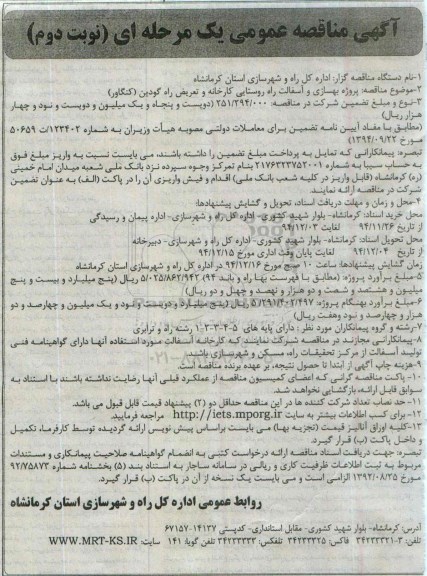 آگهی مناقصه عمومی یک مرحله ای (نوبت دوم)
۱-نام دستگاه مناقصه گزار: اداره کل راه و شهرسازی استان کرمانشاه
۲-موضوع مناقصه: پروژه بهسازی و آسفالت راه روستایی کارخانه و تعریض راه گودین (کنگاور)
۳-نوع و مبلغ تضمین شرکت در مناقصه: ۲۵۱/۲۹۴/۰۰۰ (دویست و پنجاه و یک میلیون و دویست و نود و چهار
هزار ریال)
(مطابق با مفاد آیین نامه تضمین برای معاملات دولتی مصوبه هیأت وزیران به شماره ۱۲۳۴۰۲/ت ۵۰۶۵۹
مورخ ۱۳۹۴/۰۹/۲۲)
تبصره: پیمانکارانی که تمایل به پرداخت مبلغ تضمین را داشته باشند، می بایست نسبت به واریز مبلغ فوق
به حساب سیبا به شماره ۲۱۷۶۳۲۳۷۵۲۰۰۱ بنام تمرکز وجوه سپرده نزد بانک ملی شعبه میدان امام خمینی
(ره) کرمانشاه (قابل واریز در کلیه شعب بانک ملی) اقدام و فیش واریزی آن را در پاکت (الف) به عنوان تضمین
شرکت در مناقصه ارائه نمایند.
۴-محل و زمان و مهلت دریافت اسناد، تحویل و گشایش پیشنهادها:
محل خرید اسناد: کرمانشاه- بلوار شهید کشوری- اداره کل راه و شهرسازی- اداره پیمان و رسیدگی
از تاریخ ۹۴/۱۱/۲۶ لغایت ۹۴/۱۲/۰۳
محل تحویل اسناد: کرمانشاه- بلوار شهید کشوری- اداره کل راه و شهرسازی- دبیرخانه
از تاریخ ۹۴/۱۲/۰۴ لغایت پایان وقت اداری مورخ ۹۴/۱۲/۱۵
زمان گشایش پیشنهادها: ساعت ۱۰ صبح مورخ ۹۴/۱۲/۱۶ در اداره کل راه و شهرسازی استان کرمانشاه
۵-مبلغ برآورد پروژه: (مطابق با فهرست بها راه و باند ۹۴) ۵/۰۲۵/۸۶۲/۹۴۲ ریال (پنج میلیارد و بیست و پنج
میلیون و هشتصد و شصت و دو هزار و نهصد و چهل و دو ریال)
۶-مبلغ برآورد بهنگام پروژه: ۵/۲۹۱/۴۰۲/۴۹۷ ریال (پنج میلیارد و دویست و نود و یک میلیون و چهارصد و دو
هزار و چهارصد و نود و هفت ریال)
۷-رشته و گروه پیمانکاران مورد نظر: دارای پایه های ۵-۴-۳-۲-۱ رشته راه و ترابری
۸-پیمانکارانی مجازند در مناقصه شرکت نمایند که کارخانه آسفالت مورد استفاده آنها دارای گواهینامه فنی
تولید آسفالت از مرکز تحقیقات راه، مسکن و شهرسازی باشد.
۹-هزینه چاپ آگهی از ابتدا تا حصول نتیجه، بر عهده برنده مناقصه است.
۱۰- پاکت مناقصه گرانی که اعضای کمیسیون مناقصه از عملکرد قبلی آنها رضایت نداشته باشند با استناد به
سوابق قابل ارائه، بازگشایی نخواهد شد.
۱۱- حد نصاب تعداد شرکت کننده ها در این مناقصه حداقل دو (۲) پیشنهاد قیمت قابل قبول می باشد.
۱۲-برای کسب اطلاعات بیشتر به سایت http://iets.mporg.ir مراجعه فرمایید.
۱۳-کلیه اوراق آنالیز قیمت (تجزیه بها) می بایست براساس پیش نویس ارائه گردیده توسط کارفرما، تکمیل
و داخل پاکت (ب) قرار گیرد.
تبصره: جهت دریافت اسناد مناقصه ارائه درخواست کتبی به انضمام گواهینامه صلاحیت پیمانکاری و مستندات
مربوط به ثبت اطلاعات ظرفیت کاری و ریالی در سامانه ساجار به استناد بند (۵) بخشنامه شماره ۹۲/۷۵۸۷۳
مورخ ۱۳۹۲/۰۸/۲۵ الزامی است و می بایست یک نسخه از آن در پاکت (ب) قرار گیرد.
روابط عمومی اداره کل راه و شهرسازی استان کرمانشاه
آدرس: کرمانشاه- بلوار شهید کشوری- مقابل استانداری- کدپستی ۱۴۱۳۷-۶۷۱۵۷
تلفن: ۳-۳۴۲۳۳۲۲۱ فاکس: ۳۴۲۳۳۲۲۵ تلفکس: ۳۴۲۳۳۳۳۳ تلفن گویا: ۱۴۱ سایت: WWW.MRT-KS.IR